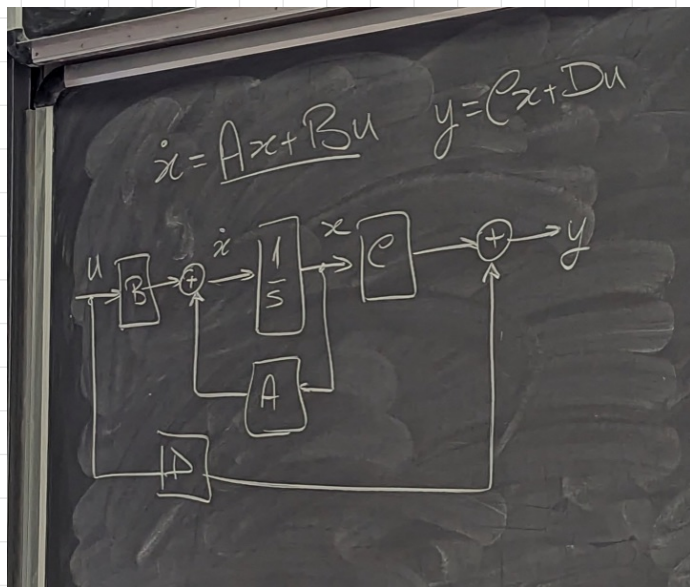 ẋ = Ax + Bu y = Cx + Du
u B + ẋ 1/s x C + y
A
D